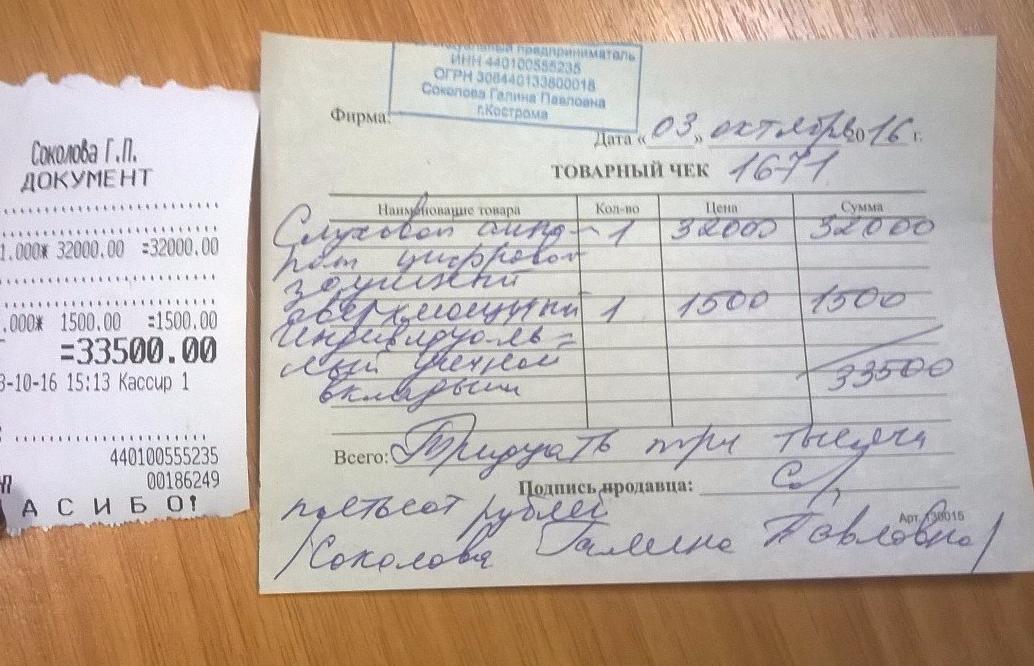 Соколова Г.П.
ДОКУМЕНТ
1.000* 32000.00 =32000.00
.000* 1500.00 =1500.00
=33500.00
3-10-16 15:13 Кассир 1
440100555235
00186249
АСИБО!
предприниматель
ИНН 440100555235
ОГРН 306440133800018
Соколова Галина Павловна
г.Кострома
Фирма:
Дата «03» октября 2016 г.
ТОВАРНЫЙ ЧЕК 1671
Наименование товара Кол-во Цена Сумма
Слуховой аппа- 1 32000 32000
рат цифровой
заушный
сверхмощный 1 1500 1500
Индивидуаль=
ный ушной
вкладыш 33500
Всего: Тридцать три тысячи
Подпись продавца:
пятьсот рублей
Арт. 130015
/Соколова Галина Павловна/